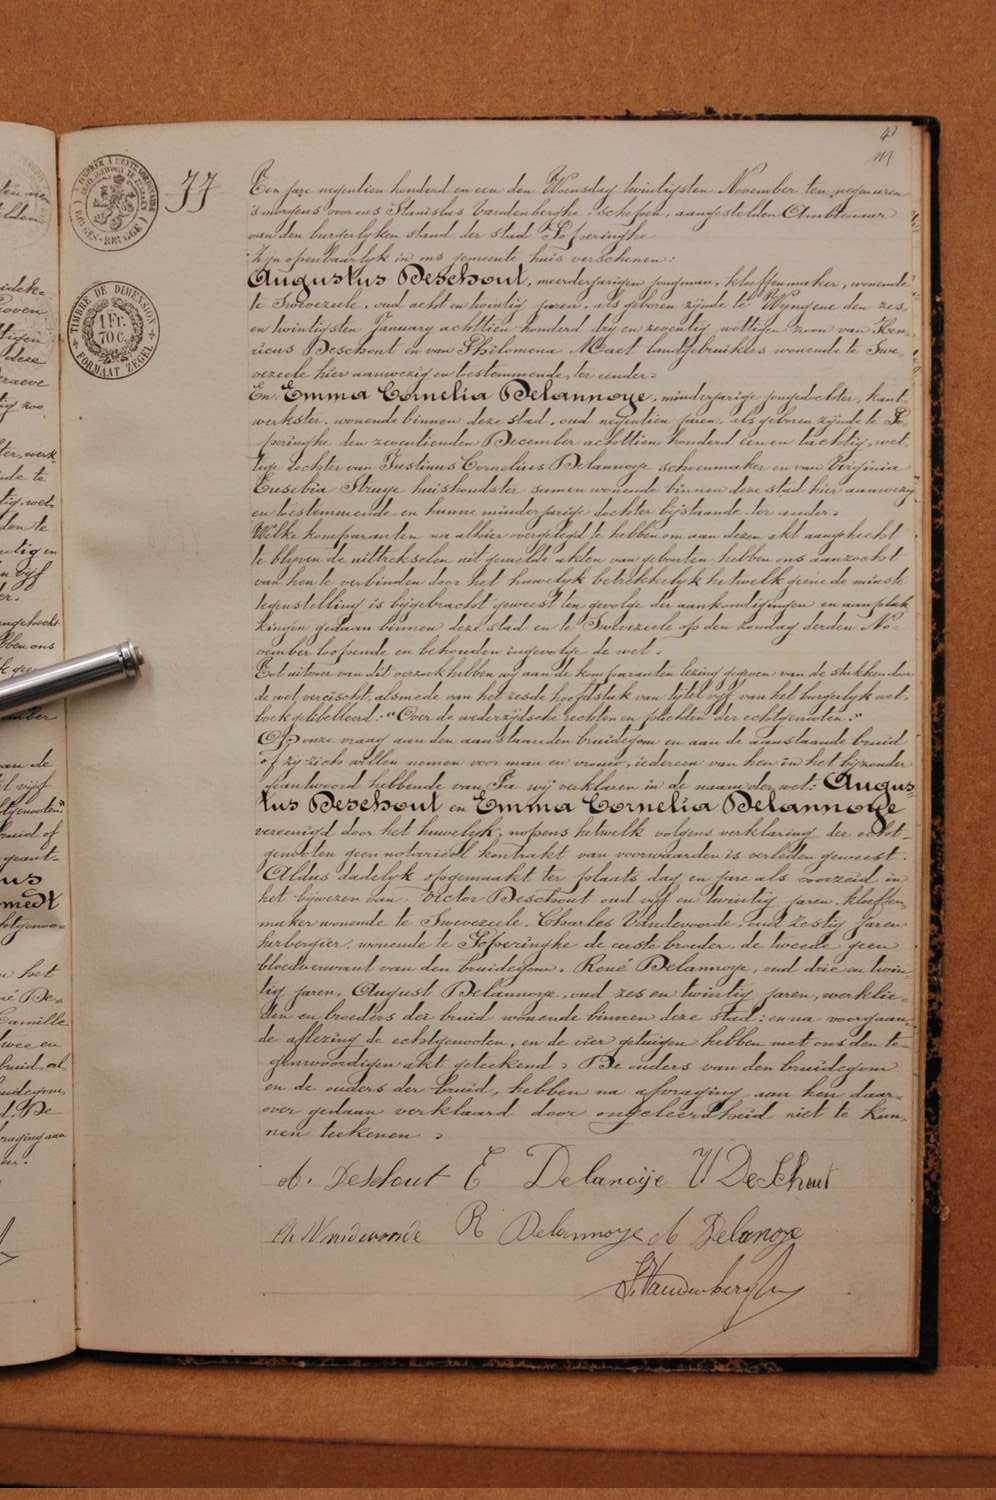 41
77
TIMBRE DE DIMENSION
1 Fr.
70 c.
FORMAAT ZEGEL
BRUGES-BRUGGE
Een jare negentien honderd en een den Woensdag twintigsten November ten negen uren
's morgens voor ons Stanislas Vandenberghe, schepen, aangestelden Ambtenaar
van den burgerlyken stand der stad Poperinghe
Zijn openbaarlyk in ons gemeente huis verschenen:
Augustus Deschout, meerderjarigen jongman, kloeffenmaker, wonende
te Swevezeele, oud acht en twintig jaren, als geboren zijnde te Wyngene den zes
en twintigsten January achttien honderd dry en zeventig, wettigen zoon van Hen-
ricus Deschout en van Philomena Maet landgebruikers wonende te Swe-
vezeele hier aanwezig en bestemmende, ter eender.
En Emma Cornelia Delannoye, minderjarige jongedochter, kant
werkster, wonende binnen deze stad, oud negentien jaren, als geboren zijnde te Po
peringhe den zeventienden December achttien honderd een en tachtig, wet
tige dochter van Justinus Cornelius Delannoye schoenmaker en van Virginia
Eusebia Struye huishoudster samen wonende binnen deze stad hier aanwezig
en bestemmende en hunne minderjarige dochter bijstaande ter ander.
Welke komparanten na alhier overgelegd te hebben om aan dezen akt aangehecht
te blyven de uittreksels uit gemelde akten van geboorten, hebben ons aanzocht
van hen te verbinden door het huwelyk betrekkelyk hetwelk geene de minste
tegenstelling is bijgebracht geweest ten gevolge der aankondigingen en aanplak
kingen gedaan binnen deze stad en te Swevezeele op den zondag derden No-
vember loopende en behouden ingevolge de wet.
Tot uitvoer van dit verzoek hebben wy aan de komparanten lezing gegeven van de stukken door
de wet vereischt, alsmede van het zesde hoofdstuk van tytel vyf van het burgerlyk wet-
boek getibelleerd: "Over de wederzydsche rechten en plichten der echtgenooten."
Op onze vraag aan den aanstaanden bruidegom en aan de aanstaande bruid
of zy zich willen nemen voor man en vrouw, iedereen van hen in het bijzonder
geantwoord hebbende van Ja wij verklaren in de naam der wet: Augus
tus Deschout en Emma Cornelia Delannoye
vereenigd door het huwelyk, nopens hetwelk volgens verklaring der echt-
genooten geen notarieël kontrakt van voorwaarden is verleden geweest.
Aldus dadelyk opgemaakt ter plaats dag en jare als voorzeid in
het bijwezen van Victor Deschout oud vijf en twintig jaren, kloeffen-
maker wonende te Swevezeele, Charles Vandevoorde, oud zestig jaren
herbergier, wonende te Poperinghe de eerste broeder, de tweede geen
bloedverwant van den bruidegom, René Delannoye, oud drie en twin-
tig jaren, August Delannoye, oud zes en twintig jaren, werklie-
den en broeders der bruid wonende binnen deze stad: en na voorgaan-
de aflezing de echtgenooten, en de vier getuigen hebben met ons den te-
genwoordigen akt geteekend. De ouders van den bruidegom
en de ouders der bruid, hebben na afvraging aan hen daar-
over gedaan verklaard door ongeleerdheid niet te kun-
nen teekenen.
A. Deschout E Delanoije V DeSchout
Ch Vandevoorde R Delannoye A Delanoye
S. Vandenberghe